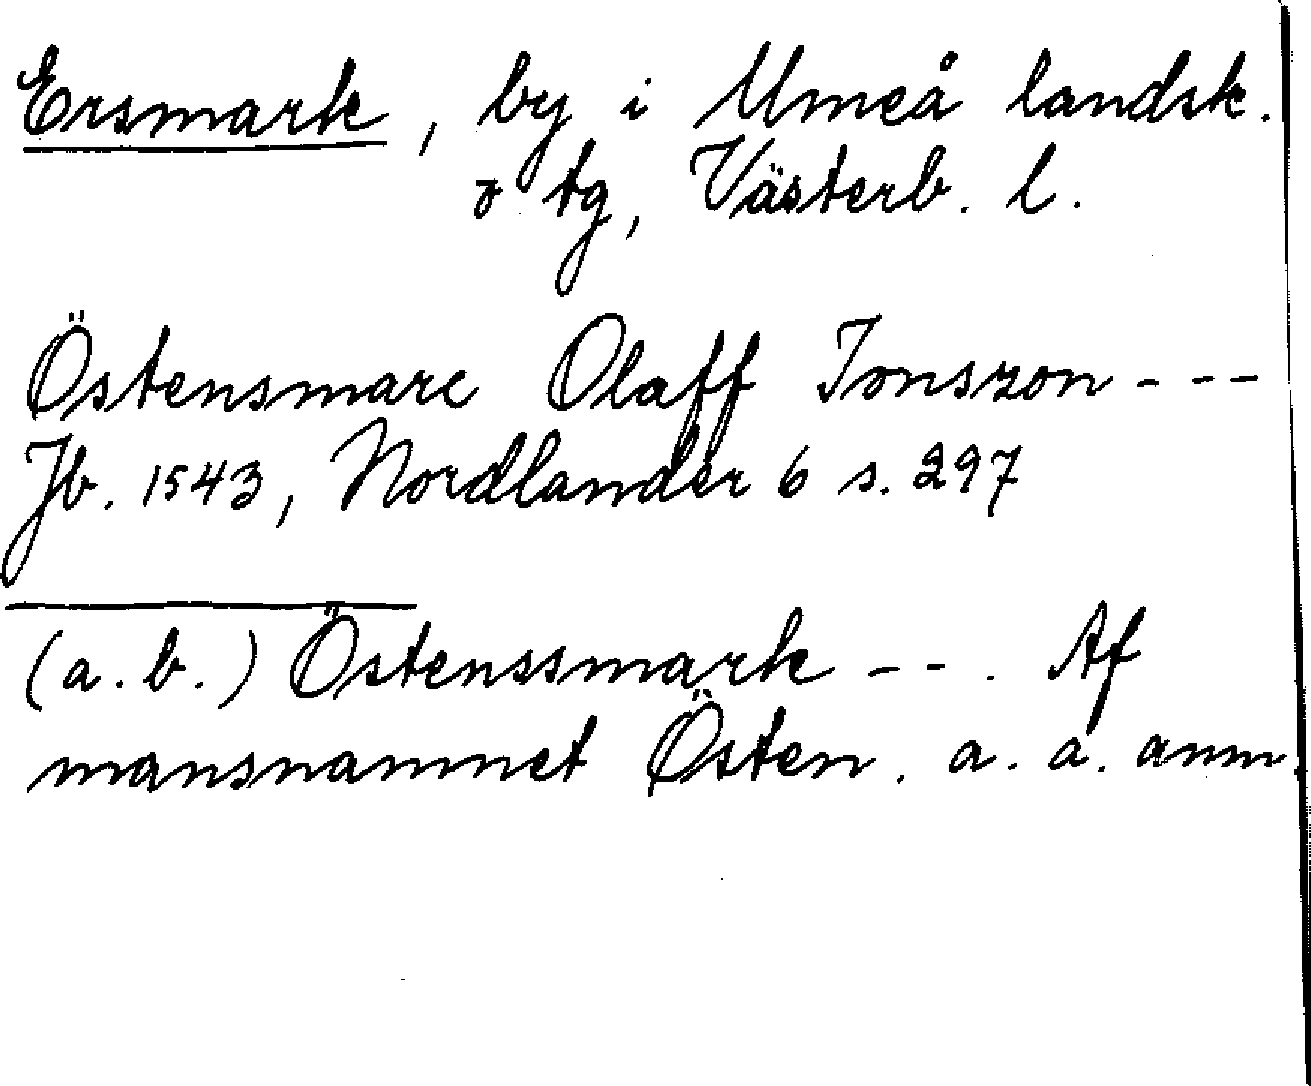 Ersmark, by i Umeå landsk.
o tg, Västerb. l.
Östensmarc Olaff Ionszon - - -
Jb. 1543, Nordlander 6 s. 297
(a. b.) Östenssmark - - . Af
mansnamnet Östen. a. a. anm.